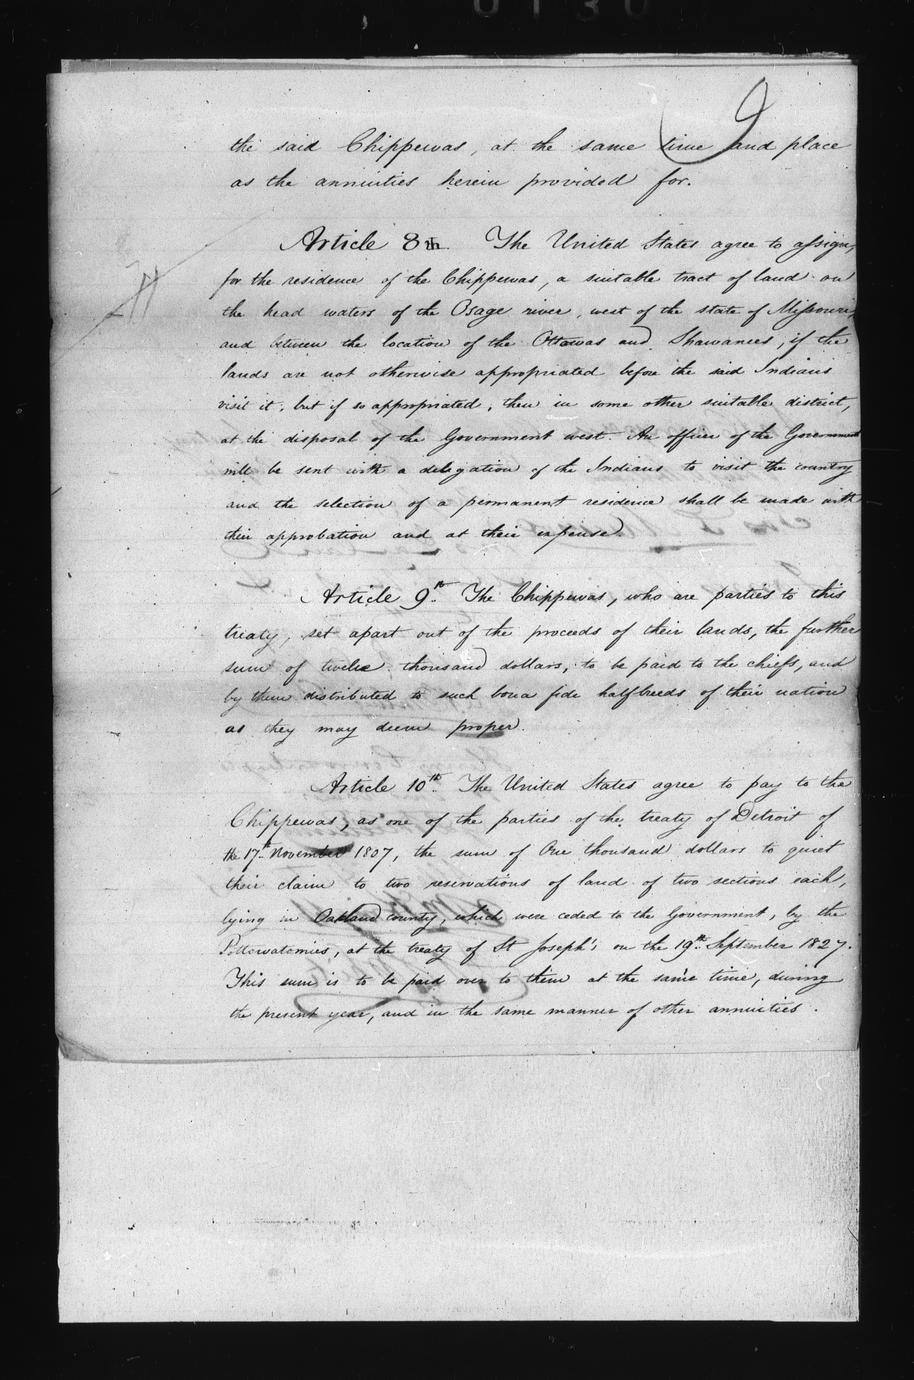 0130
9
the said Chippewas, at the same time and place
as the annuities herein provided for.
Article 8th. The United States agree to assign,
for the residence of the Chippewas, a suitable tract of land on
the head waters of the Osage river, west of the state of Missouri,
and between the location of the Ottawas and Shawanees, if the
lands are not otherwise appropriated before the said Indians
visit it; but if so appropriated, then in some other suitable district,
at the disposal of the Government west. An officer of the Government
will be sent with a delegation of the Indians to visit the country
and the selection of a permanent residence shall be made with
their approbation and at their expense.
Article 9th. The Chippewas, who are parties to this
treaty, set apart out of the proceeds of their lands, the further
sum of twelve thousand dollars, to be paid to the chiefs, and
by them distributed to such bona fide halfbreeds of their nation
as they may deem proper.
Article 10th. The United States agree to pay to the
Chippewas, as one of the parties of the treaty of Detroit of
the 17th November 1807, the sum of One thousand dollars to quiet
their claim to two reservations of land of two sections each,
lying in Oakland county, which were ceded to the Government, by the
Pottowatomies, at the treaty of St Joseph's on the 19th September 1827.
This sum is to be paid over to them at the same time, during
the present year, and in the same manner of other annuities.